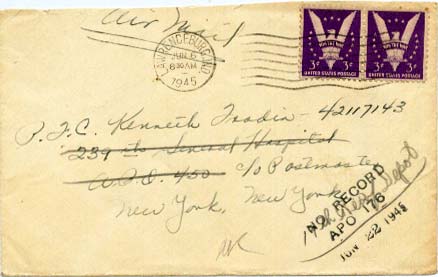 Air Mail
LAWRENCEBURG, IND.
JUN 6
830 AM
1945
WIN THE WAR
3¢ 3¢
UNITED STATES POSTAGE
WIN THE WAR
3¢ 3¢
UNITED STATES POSTAGE
P.F.C. Kenneth - 42117143
239 General Hospital
A.P.O. 450 c/o Postmaster
New York, New York
NO RECORD
APO 176
JUN 22 1945
Depot